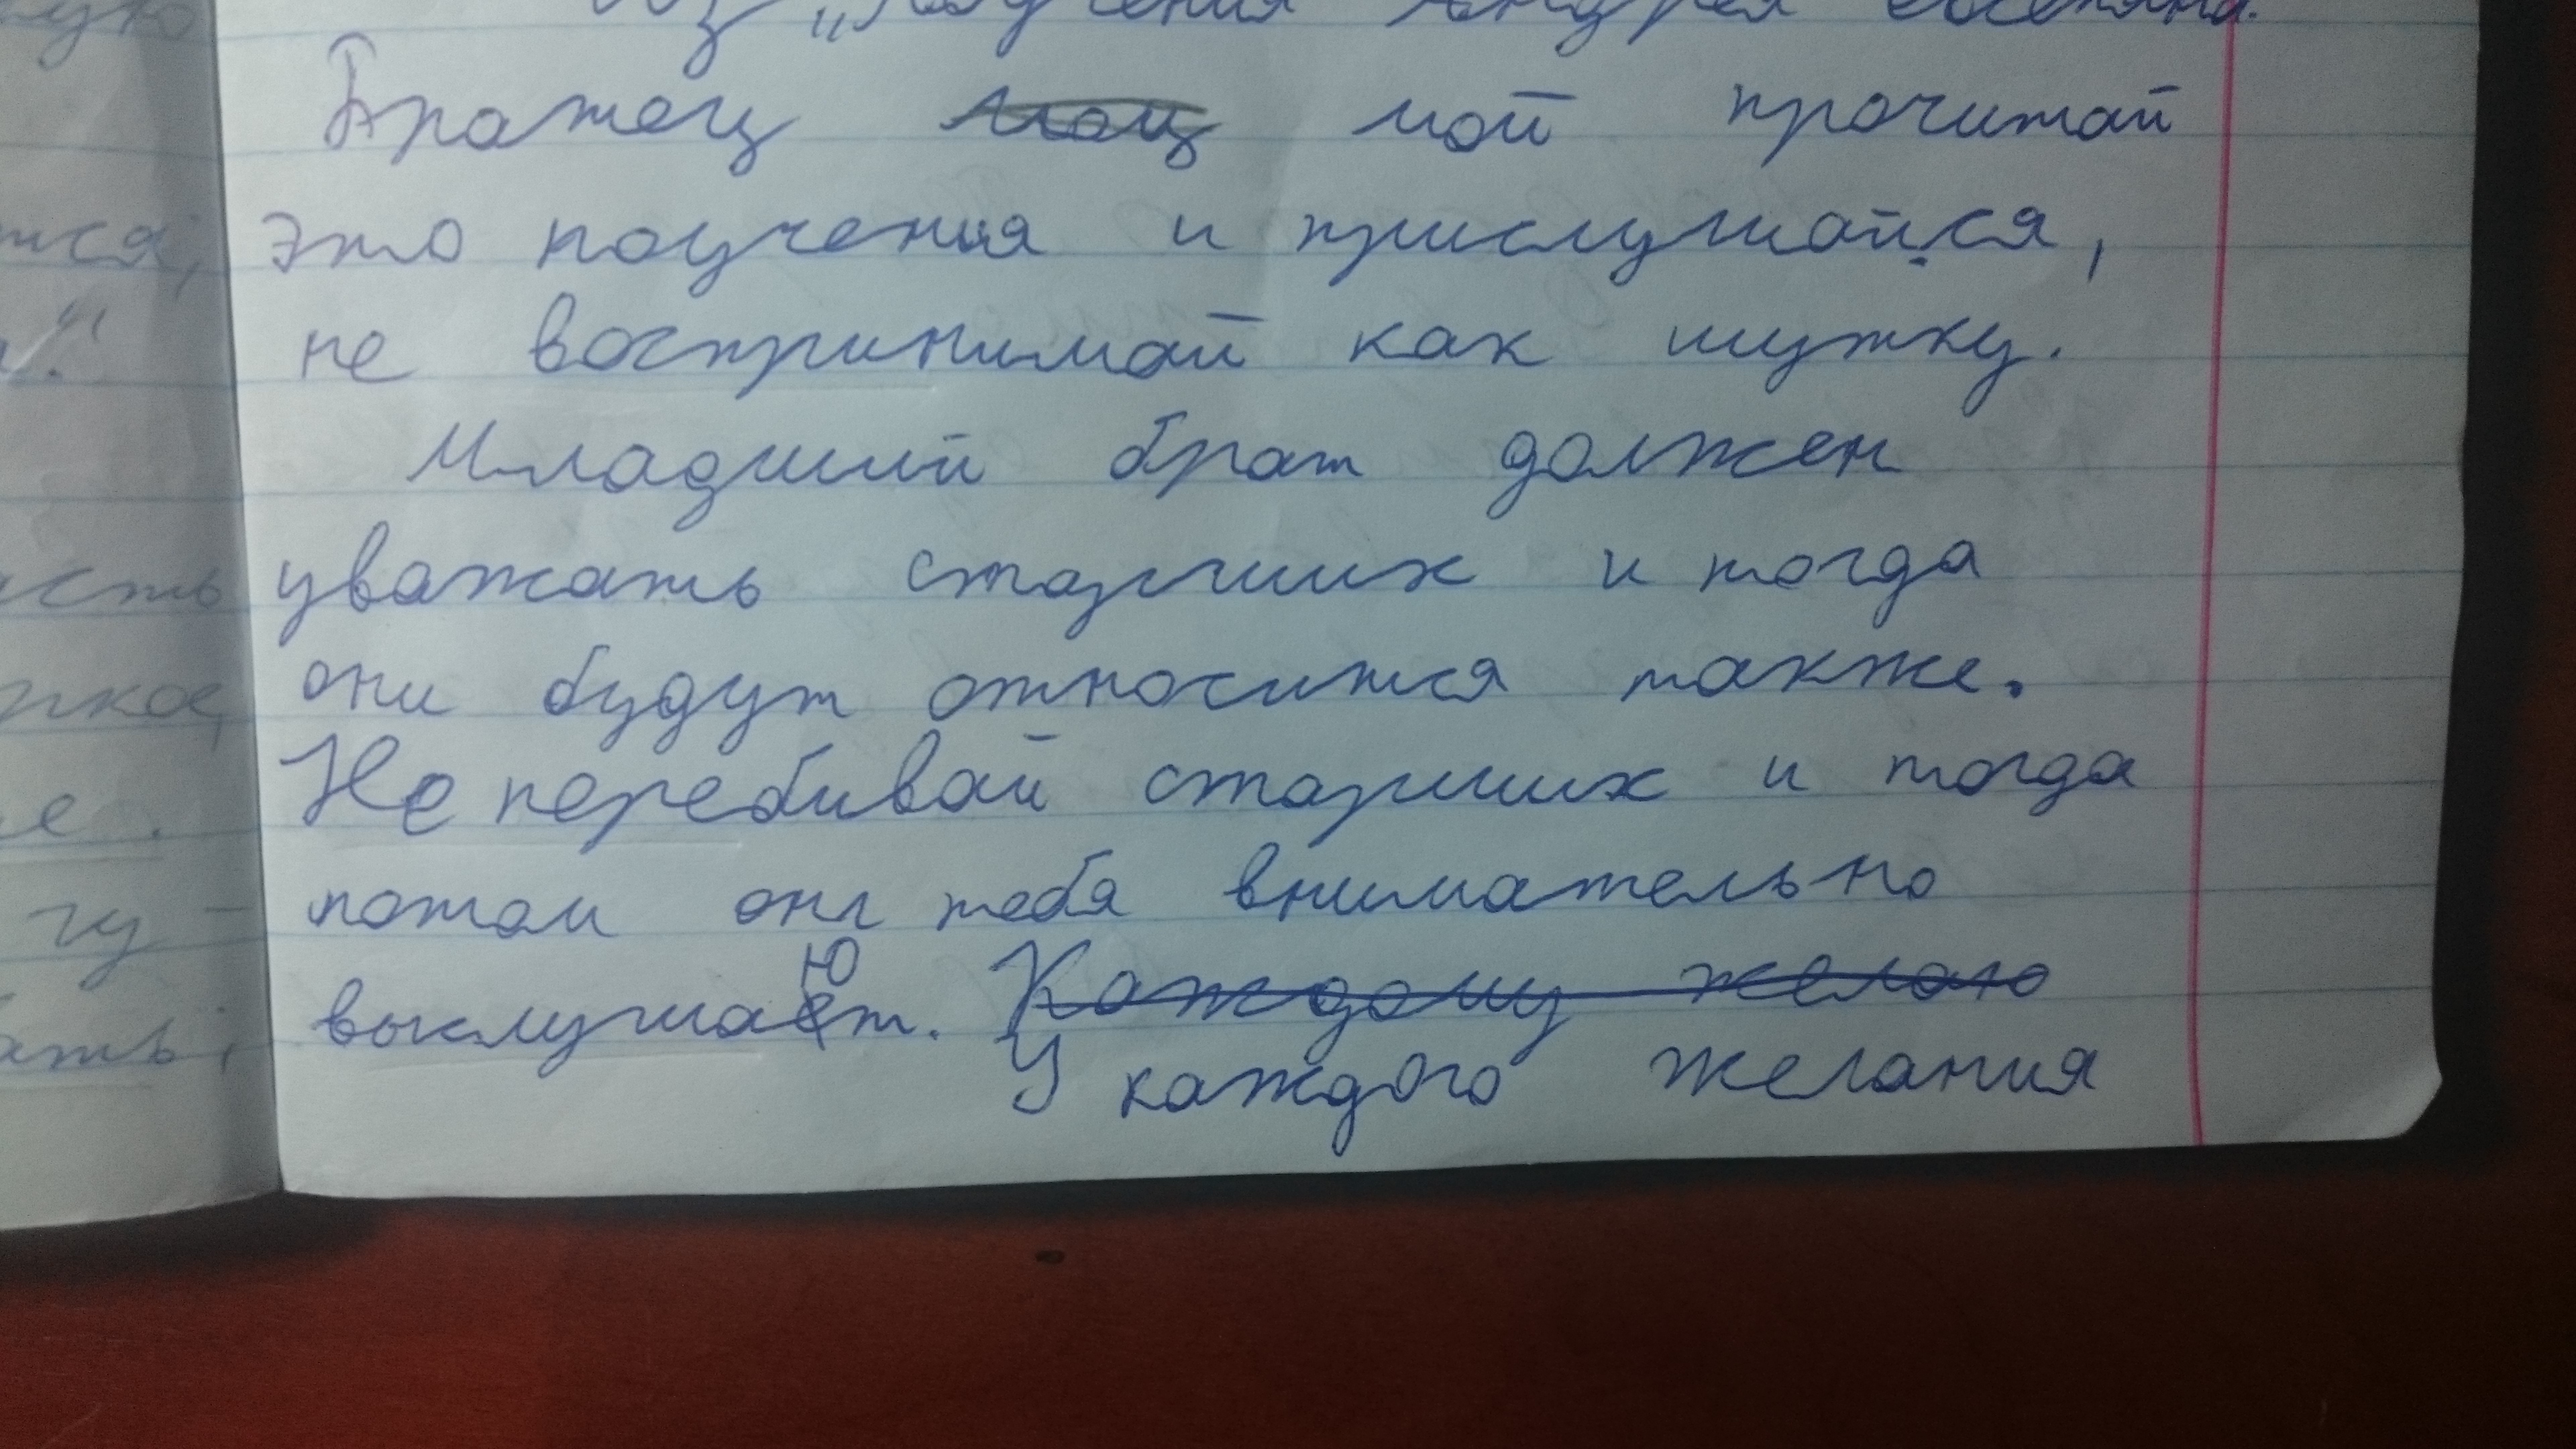 Из „Поучения Андрея
Братец мой прочитай
это поучения и прислушайся,
не воспринимай как шутку.
Младший брат должен
уважать старших и тогда
они будут относится также.
Не перебивай старших и тогда
потом они тебя внимательно
выслушают. Каждому желаю
У каждого желания